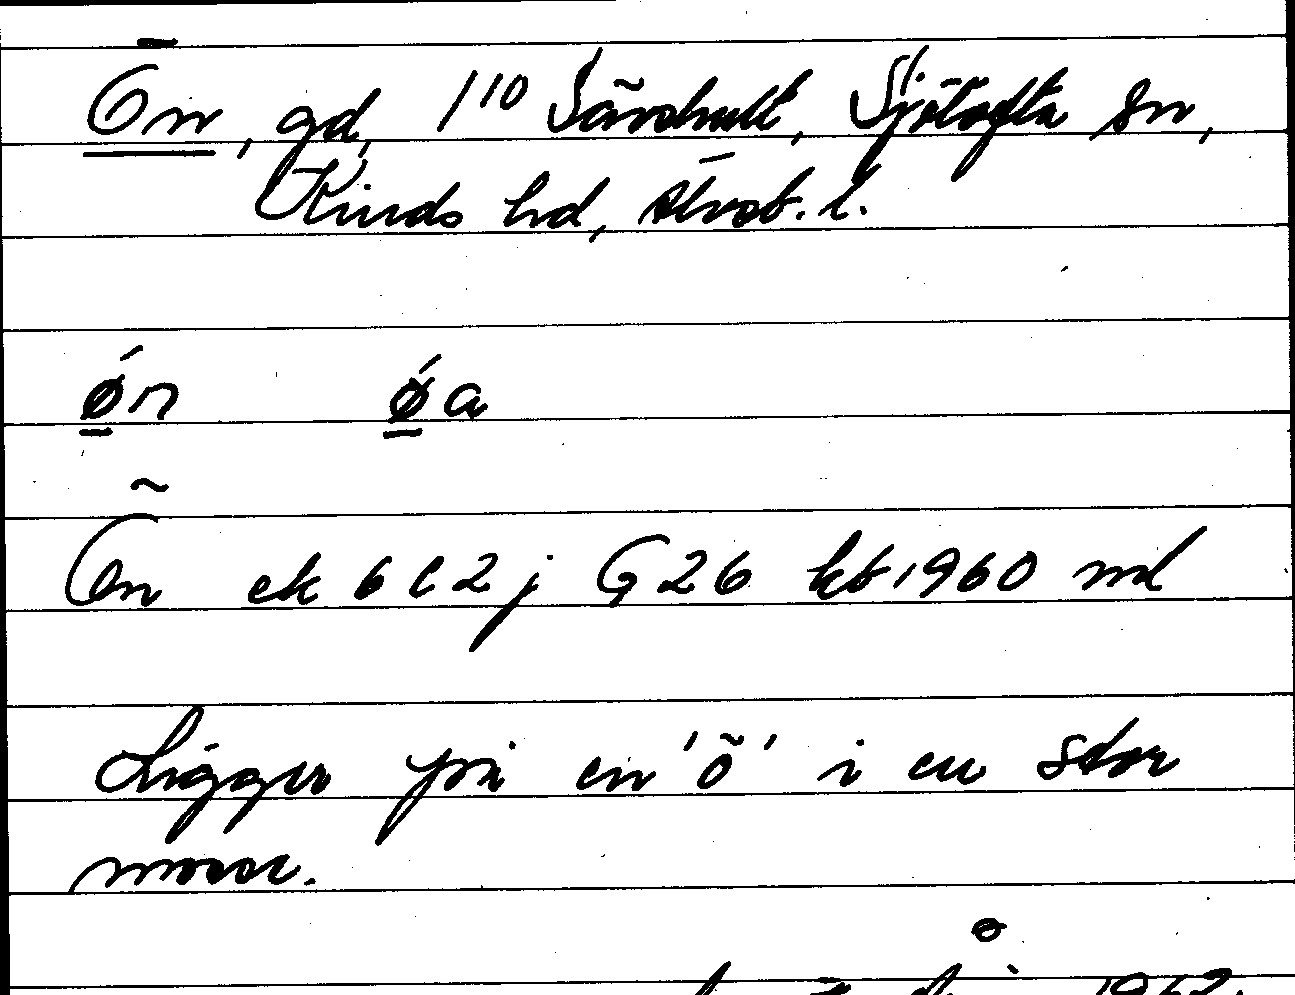 Ön, gd, 1/10 Särshult, Sjötofta sn,
Kinds hd, Älvsb. l.
ǿn ǿa
Ön ek 6 C 2 j G 26 kb 1960 md
Ligger på en 'ö' i en stor
mosse.